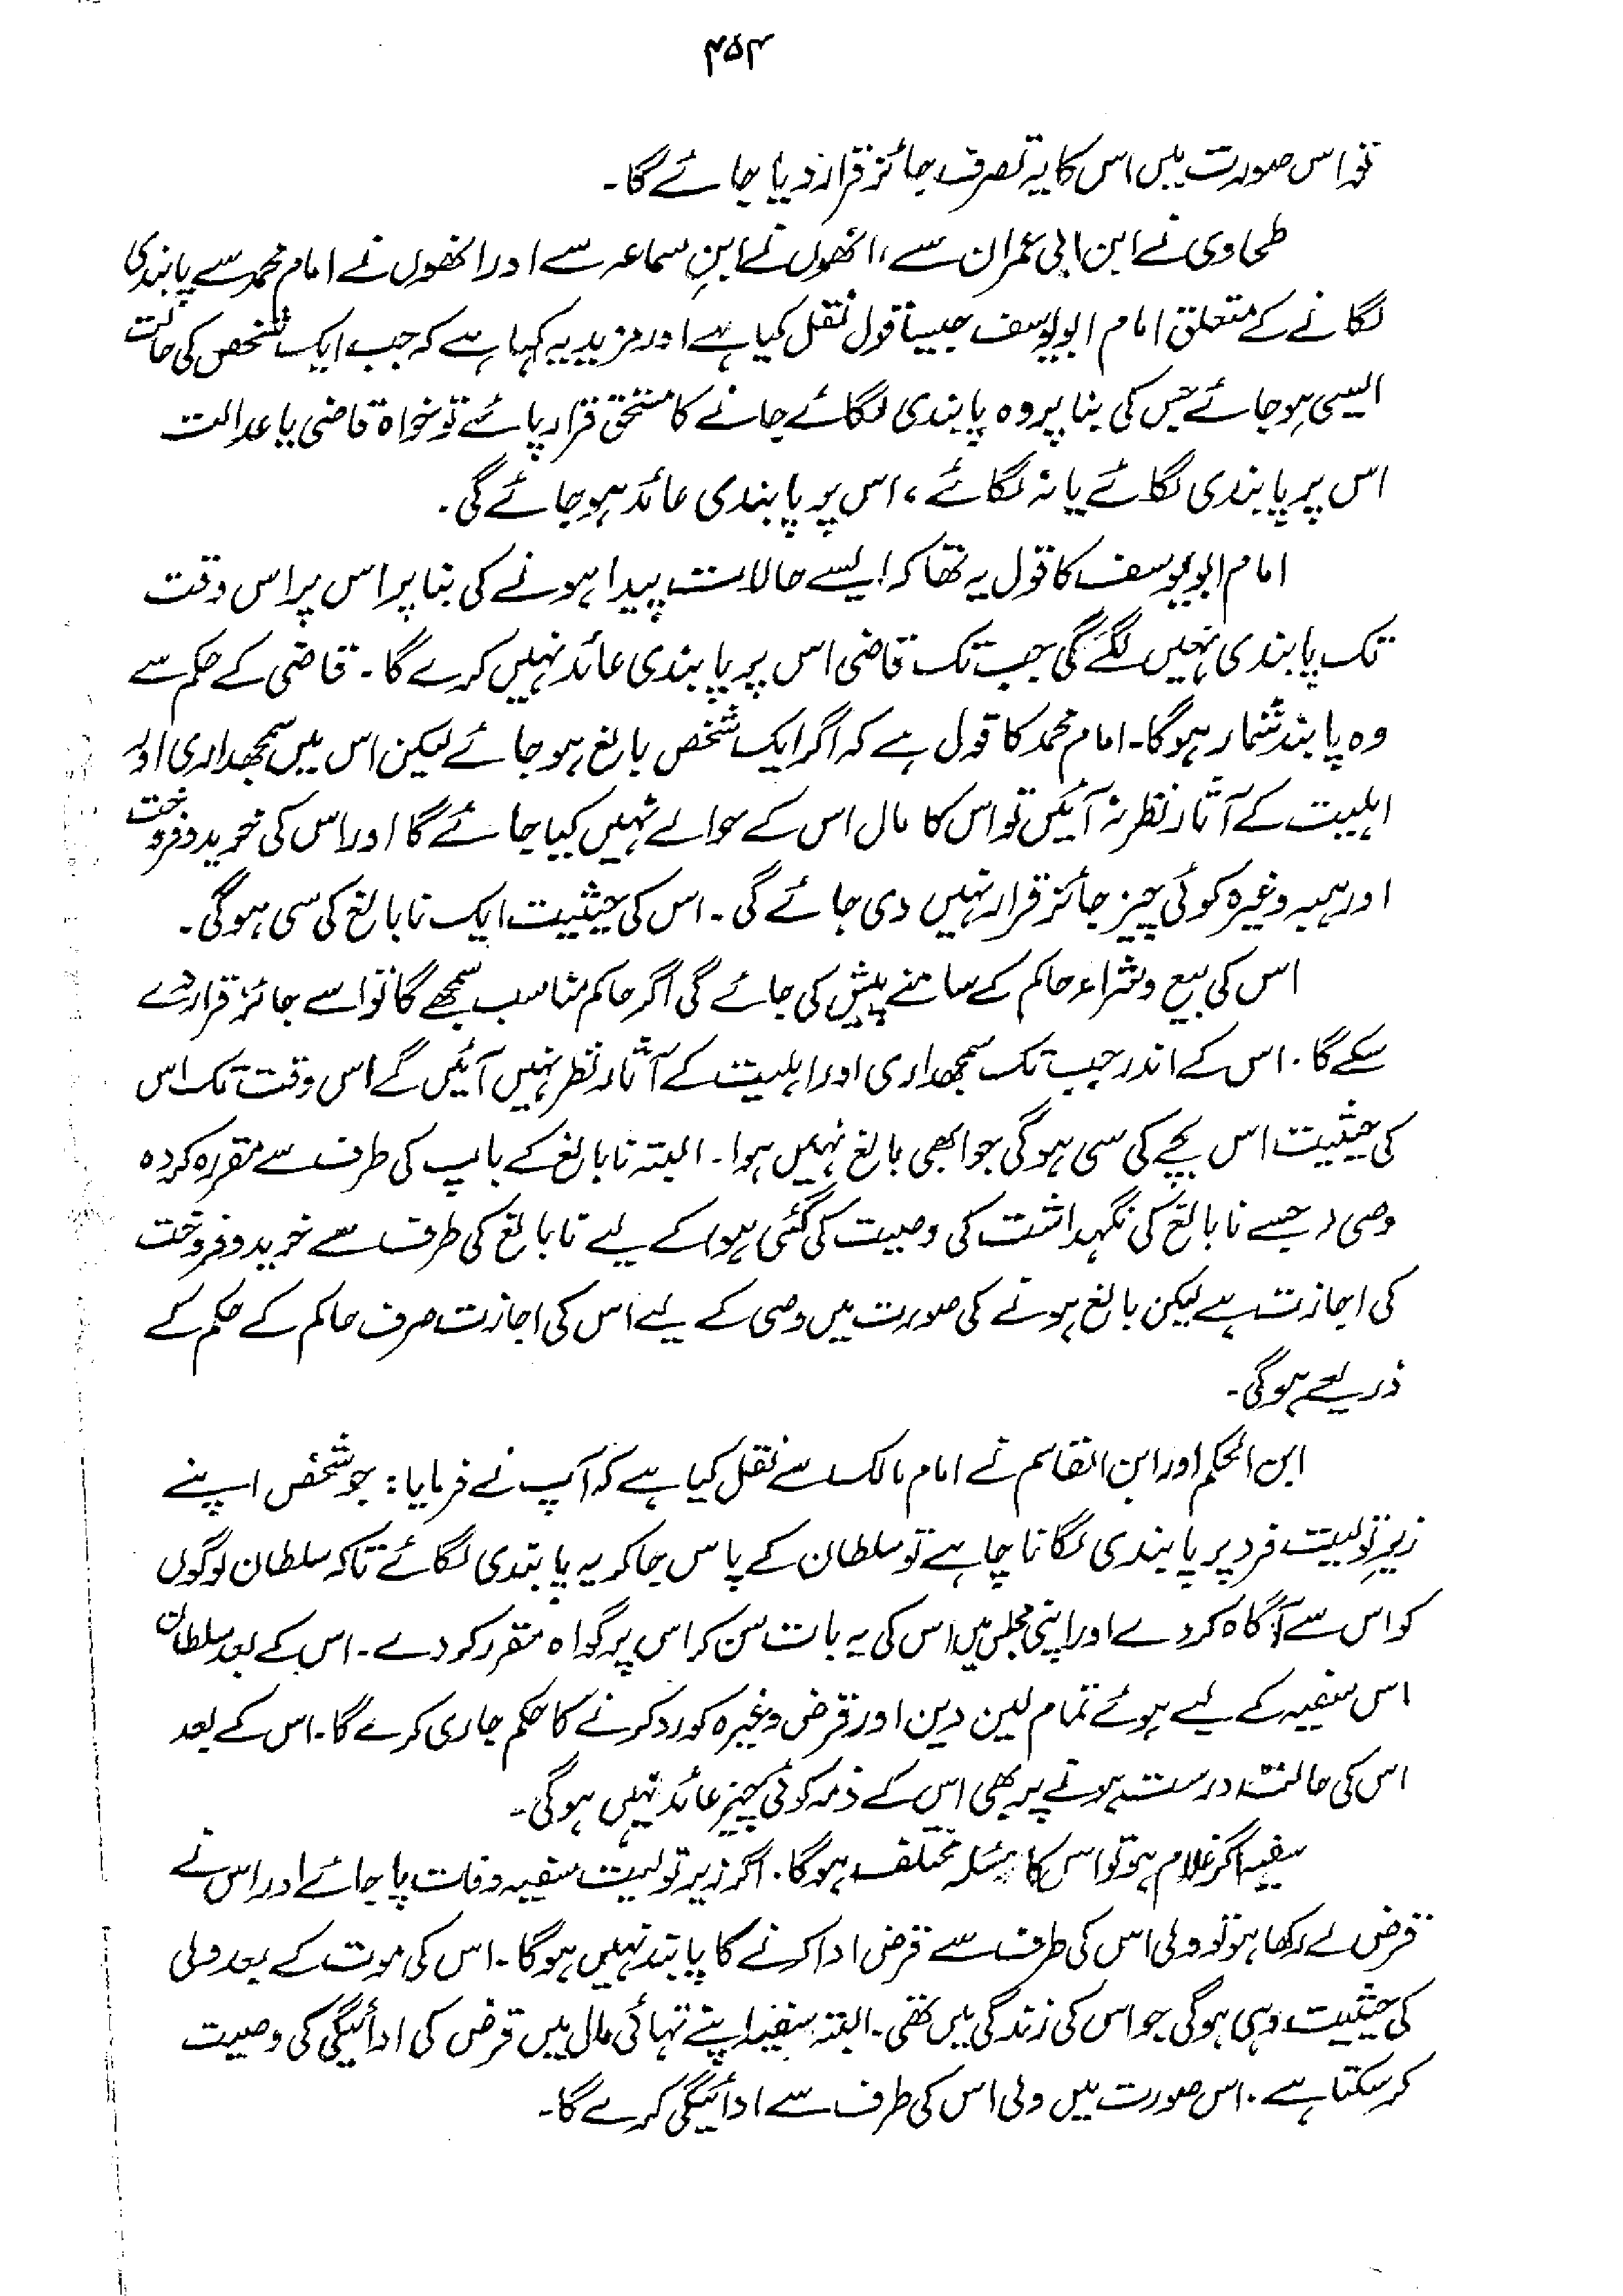 ۴۵۴
تو اس صورت میں اس کا یہ تصرف جائز قرار دیا جائے گا۔
طحاوی نے ابن ابی عمران سے، انھوں نے ابنِ سماعہ سے اور انھوں نے امام محمد سے پابندی
لگانے کے متعلق امام ابویوسف جیسا قول نقل کیا ہے اور مزید یہ کہا ہے کہ جب ایک شخص کی حالت
ایسی ہو جائے جس کی بنا پر وہ پابندی لگائے جانے کا مستحق قرار پائے تو خواہ قاضی یا عدالت
اس پر پابندی لگائے یا نہ لگائے، اس پر پابندی عائد ہو جائے گی۔
امام ابویوسف کا قول یہ تھا کہ ایسے حالات پیدا ہونے کی بنا پر اس پر اس وقت
تک پابندی نہیں لگے گی جب تک قاضی اس پر پابندی عائد نہیں کرے گا۔ قاضی کے حکم سے
وہ پابند شمار ہوگا۔ امام محمد کا قول ہے کہ اگر ایک شخص بالغ ہو جائے لیکن اس میں سمجھداری اور
اہلیت کے آثار نظر نہ آئیں تو اس کا مال اس کے حوالے نہیں کیا جائے گا اور اس کی خرید و فروخت
اور ہبہ وغیرہ کوئی چیز جائز قرار نہیں دی جائے گی۔ اس کی حیثیت ایک نابالغ کی سی ہوگی۔
اس کی بیع و شراء حاکم کے سامنے پیش کی جائے گی اگر حاکم مناسب سمجھے گا تو اسے جائز قرار دے
سکے گا۔ اس کے اندر جب تک سمجھداری اور اہلیت کے آثار نظر نہیں آئیں گے اس وقت تک اس
کی حیثیت اس بچے کی سی ہوگی جو ابھی بالغ نہیں ہوا۔ البتہ نابالغ کے باپ کی طرف سے مقررہ کردہ
وصی (جسے نابالغ کی نگہداشت کی وصیت کی گئی ہو) کے لیے نابالغ کی طرف سے خرید و فروخت
کی اجازت ہے لیکن بالغ ہونے کی صورت میں وصی کے لیے اس کی اجازت صرف حاکم کے حکم کے
ذریعے ہوگی۔
ابن الحکم اور ابن القاسم نے امام مالک سے نقل کیا ہے کہ آپ نے فرمایا: جو شخص اپنے
زیرِ تولیت فرد پر پابندی لگانا چاہے تو سلطان کے پاس جا کر یہ پابندی لگائے تاکہ سلطان لوگوں
کو اس سے آگاہ کر دے اور اپنی مجلس میں اس کی یہ بات سن کر اس پر گواہ مقرر کر دے۔ اس کے بعد سلطان
اس سفیہ کے لیے ہوئے تمام لین دین اور قرض وغیرہ کو رد کرنے کا حکم جاری کرے گا۔ اس کے بعد
اس کی حالت درست ہونے پر بھی اس کے ذمہ کوئی چیز عائد نہیں ہوگی۔
سفیہ اگر غلام ہو تو اس کا مسئلہ مختلف ہوگا۔ اگر زیر تولیت سفیہ وفات پا جائے اور اس نے
قرض لے رکھا ہو تو ولی اس کی طرف سے قرض ادا کرنے کا پابند نہیں ہوگا۔ اس کی موت کے بعد ولی
کی حیثیت وہی ہوگی جو اس کی زندگی میں تھی۔ البتہ سفیہ اپنے تہائی مال میں قرض کی ادائیگی کی وصیت
کر سکتا ہے۔ اس صورت میں ولی اس کی طرف سے ادائیگی کرے گا۔